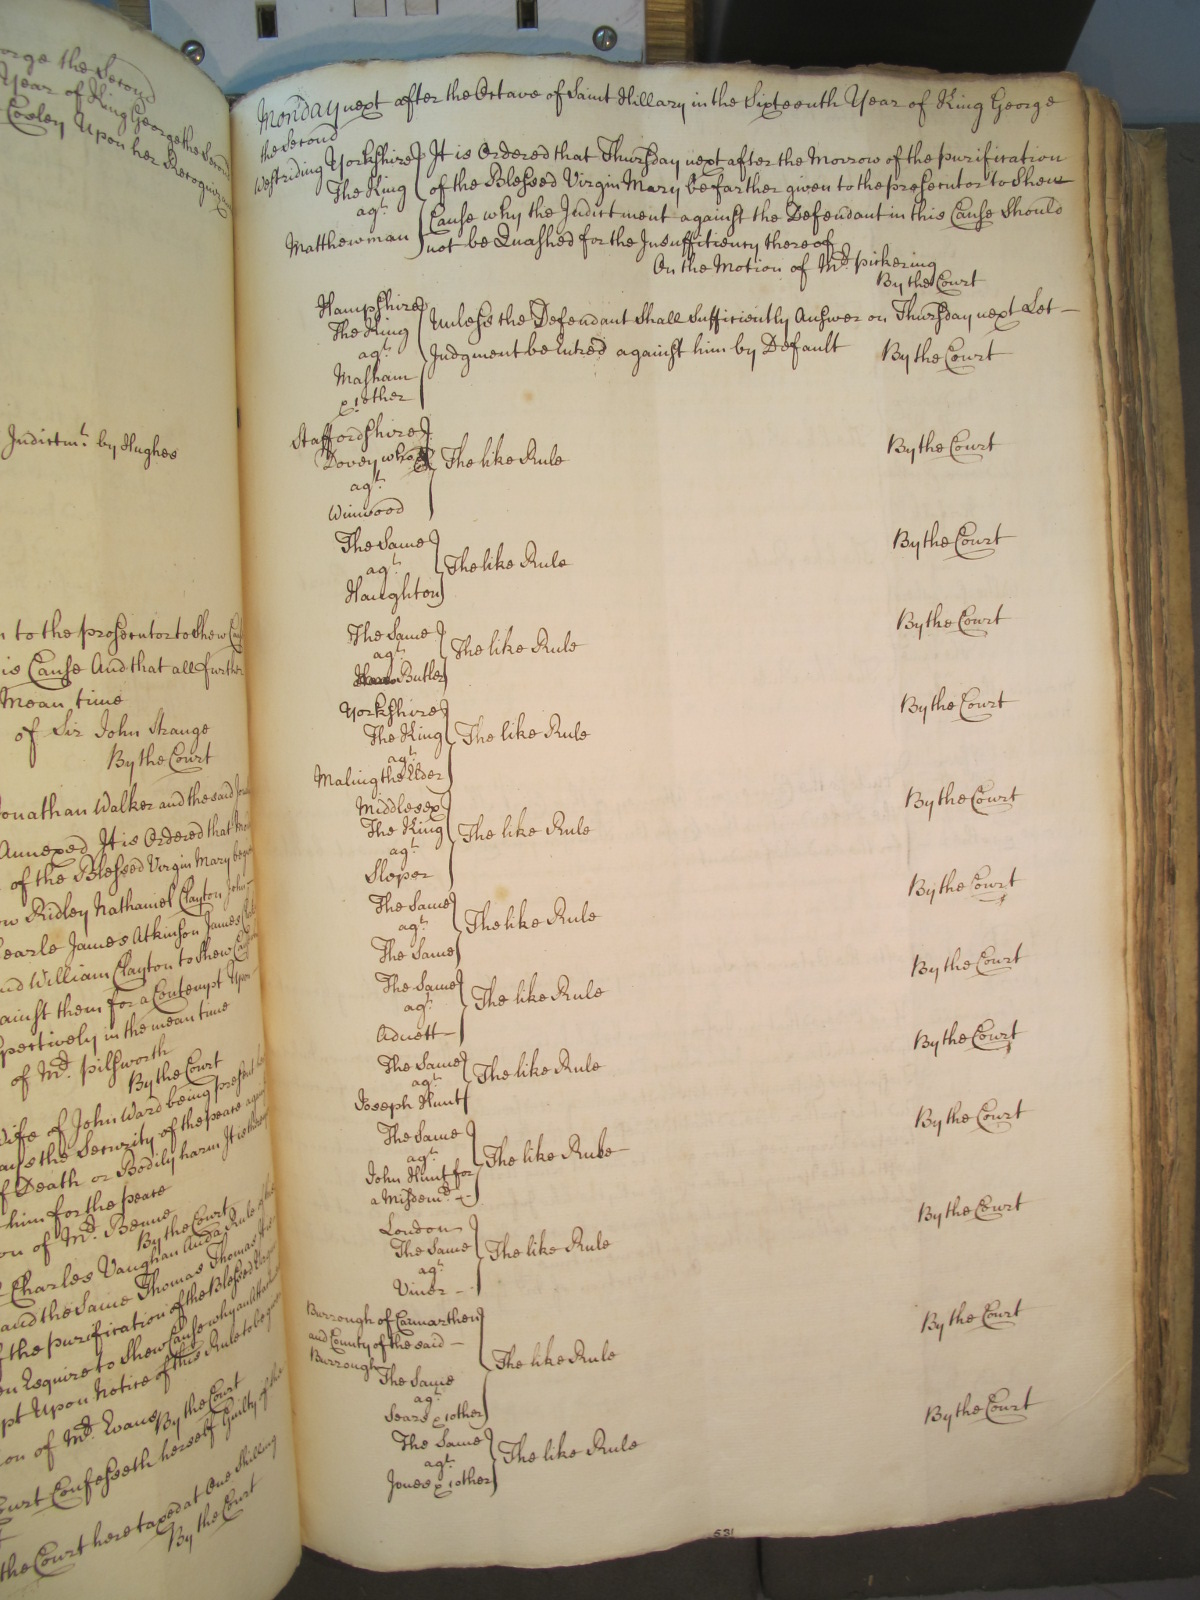 orge the Second
Year of King George the Second
Cooley Upon her Recogniz
Indictmt. by Hughes
n to the prosecutor to Shew Cause
is Cause And that all further
Mean time
of Sir John Strange
By the Court
onathan Walker and the said
Annexed It is Ordered that
of the Blessed Virgin Mary be
ow Ridley Nathaniel Clayton John
Searle James Atkinson James
nd William Clayton to Shew Cause
ainst them for a Contempt Upon
spectively in the mean time
of Mr. pilsworth
By the Court
Wife of John Ward being present
ays the Security of the peace
f Death or Bodily harm It is
him for the peace
on of Mr. Benne
By the Court
Charles Vaughan And a Rule of the
and the Same Thomas Thomas
f the purification of the Blessed
en Esquire to Shew Cause why an
pt Upon Notice of this Rule to be
ion of Mr. Evans By the Court
Court Confesseth herself Guilty of the
the Court here taxed at One Shilling
By the Court
Monday next after the Octave of Saint Hillary in the Sixteenth Year of King George
the Second
Westriding Yorkshire It is Ordered that Thursday next after the Morrow of the purification
The King of the Blessed Virgin Mary be farther given to the prosecutor to Shew
agt. Cause why the Indictment against the Defendant in this Cause Should
Matthewman not be Quashed for the Insufficiency thereof
On the Motion of Mr. pickering
By the Court
Hampshire
The King Unless the Defendant Shall Sufficiently Answer on Thursday next Let
agt. Judgment be Entred against him by Default By the Court
Masham
& 1 other
Staffordshire
Dovey who &c The like Rule By the Court
agt.
Winwood
The Same
agt. The like Rule By the Court
Haughton
The Same
agt. The like Rule By the Court
Butler
Yorkshire
The King The like Rule By the Court
agt.
Maling the Elder
Middlesex
The King The like Rule By the Court
agt.
Sloper
The Same
agt. The like Rule By the Court
The Same
The Same
agt. The like Rule By the Court
Adnett
The Same
agt. The like Rule By the Court
Joseph Hunt
The Same
agt. The like Rule By the Court
John Hunt for
a Misdemr.
London
The Same The like Rule By the Court
agt.
Viner
Burrough of Carmarthen
and County of the said
Burrough The like Rule By the Court
The Same
agt.
Sears & 1 other
The Same
agt. The like Rule By the Court
Jones & 1 other
531